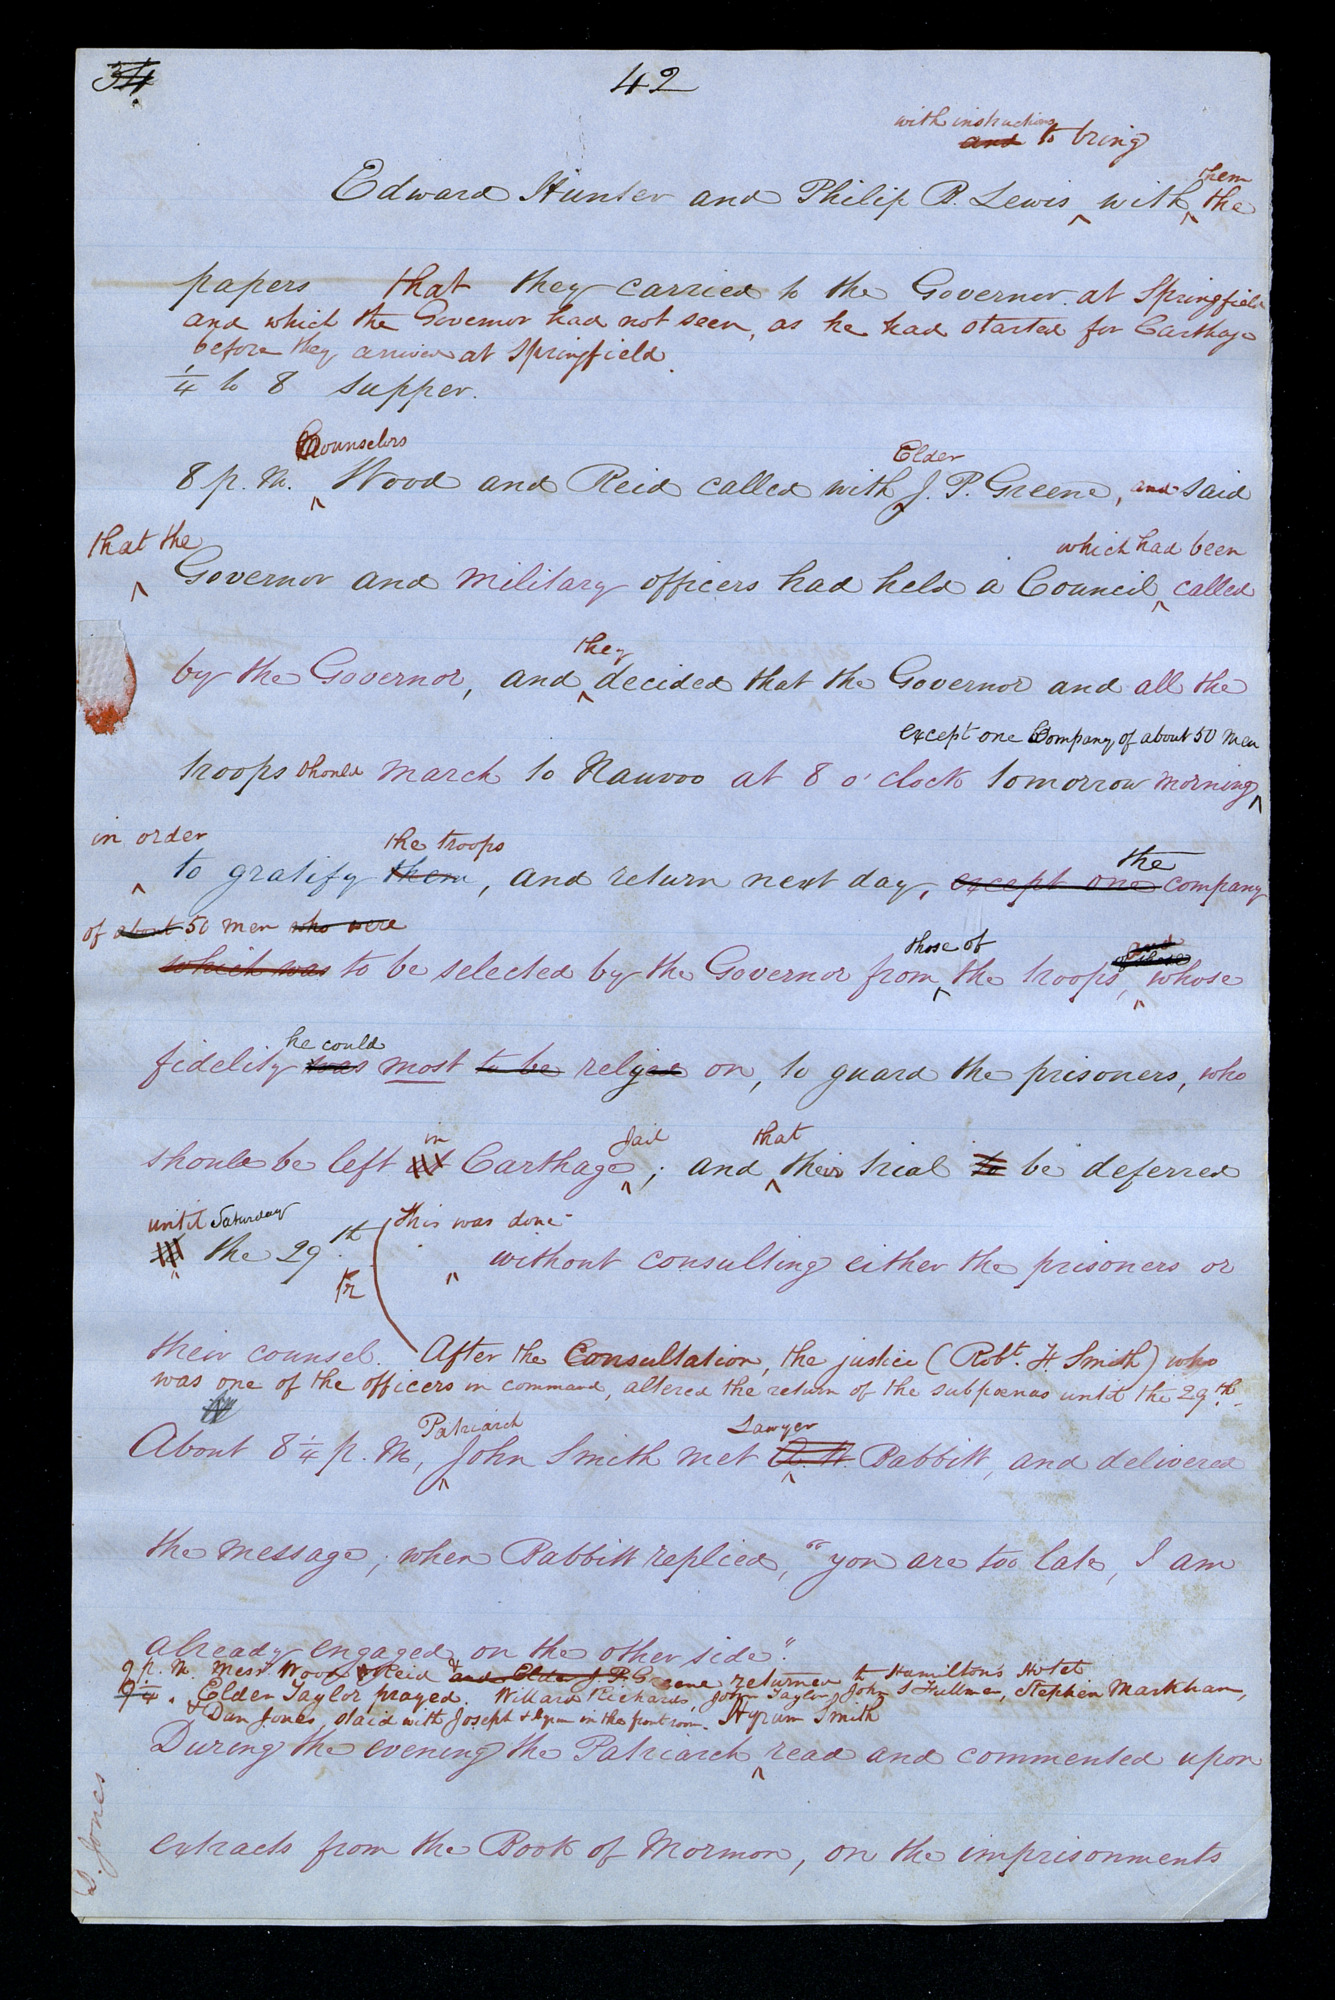 34
42
with instructions
and to bring
them
Edward Hunter and Philip B. Lewis with the
papers that they carried to the Governor. at Springfield
and which the Governor had not seen, as he had started for Carthage
before they arrived at Springfield.
¼ to 8 supper.
Counselors
Elder
8 p. M. Wood and Reid called with J. P. Greene, and said
that the
which had been
Governor and military officers had held a Council called
they
by the Governor, and decided that the Governor and all the
except one Company of about 50 men
troops should march to Nauvoo at 8 o'clock tomorrow morning
in order
the troops
to gratify them, and return next day, except one company
the
of about 50 men who were
those of
and
of those
which was to be selected by the Governor from the troops, whose
he could
fidelity was most to be relyed on, to guard the prisoners, who
in
Jail
that
should be left at Carthage; and their trial to be deferred
until Saturday
This was done
the 29th without consulting either the prisoners or
their counsel. After the Consultation, the justice (Robt. F Smith) who
was one of the officers in command, altered the return of the subpœnas until the 29th.
Patriarch
Lawyer
About 8¼ p. M, John Smith met A. W. Babbitt, and delivered
the message; when Babbitt replied, "you are too late, I am
already engaged on the other side".
9 p. M. Messrs Wood & Reid & and Elder J. P. Greene returned to Hamiltons Hotel
9¼. Elder Taylor prayed. Willard Richards, John Taylor, John S Fullmer, Stephen Markham,
& Dan Jones, staid with Joseph & Hyrum in the front room. Hyrum Smith
During the evening the Patriarch read and commented upon
extracts from the Book of Mormon, on the imprisonments
D. Jones